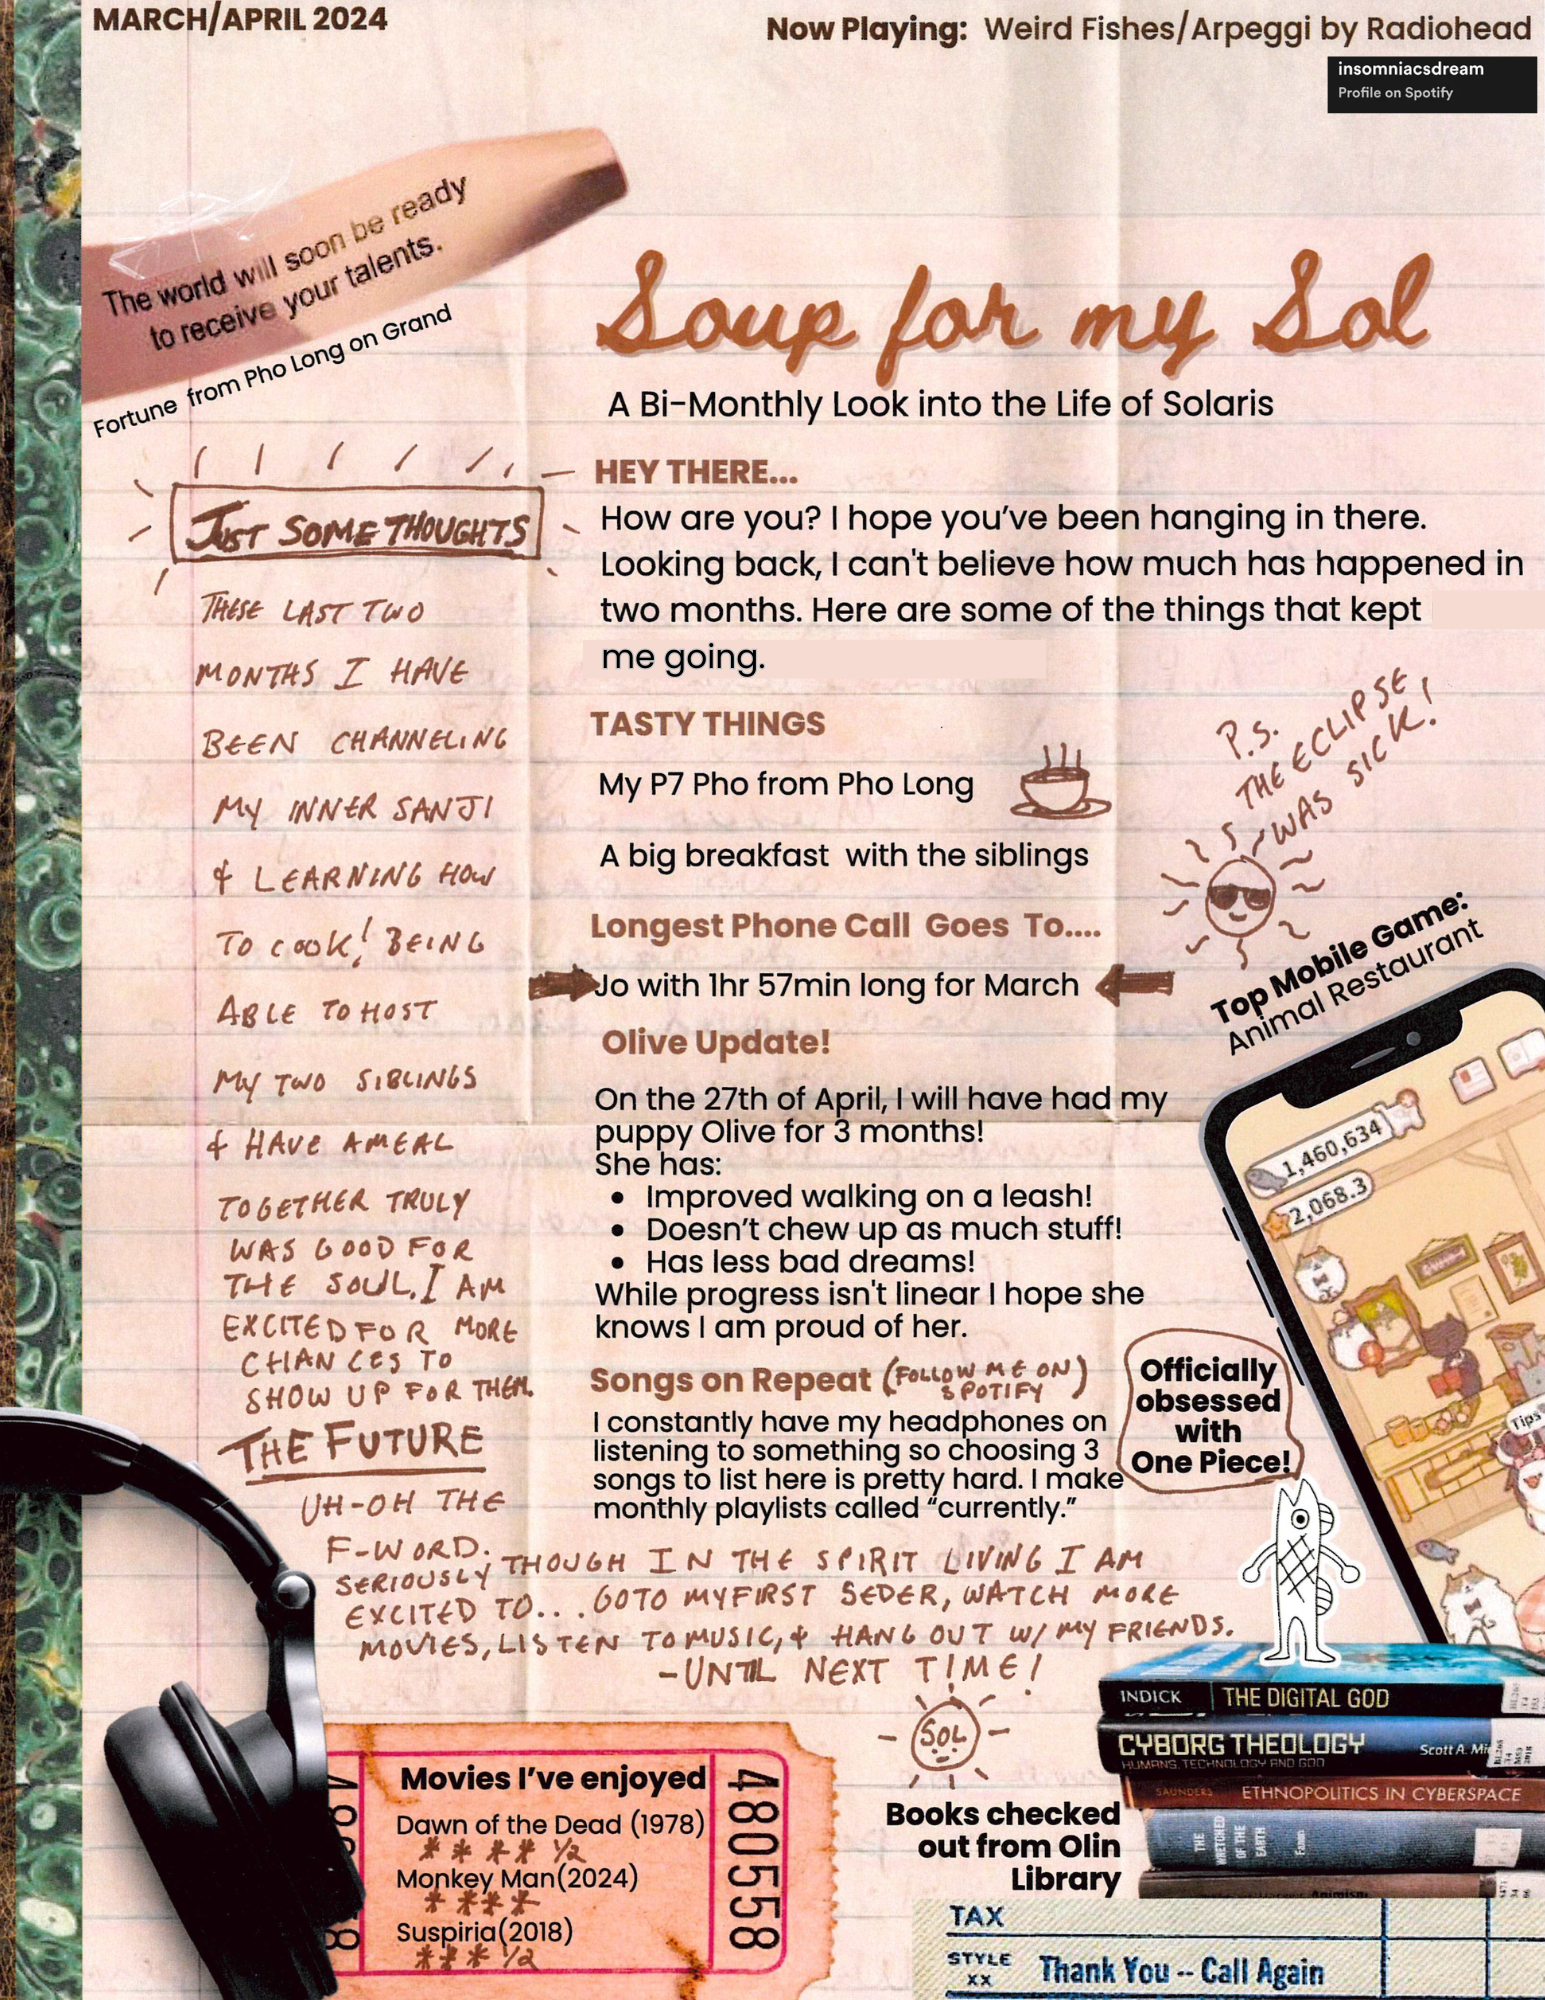 MARCH/APRIL 2024
Now Playing: Weird Fishes/Arpeggi by Radiohead
insomniacsdream
Profile on Spotify
The world will soon be ready
to receive your talents.
Fortune from Pho Long on Grand
Soup for my Sol
A Bi-Monthly Look into the Life of Solaris
JUST SOME THOUGHTS
THESE LAST TWO
MONTHS I HAVE
BEEN CHANNELING
MY INNER SANJI
& LEARNING HOW
TO COOK! BEING
ABLE TO HOST
MY TWO SIBLINGS
& HAVE A MEAL
TOGETHER TRULY
WAS GOOD FOR
THE SOUL. I AM
EXCITED FOR MORE
CHANCES TO
SHOW UP FOR THEM.
THE FUTURE
UH-OH THE
F-WORD.
SERIOUSLY THOUGH IN THE SPIRIT LIVING I AM
EXCITED TO... GOTO MY FIRST SEDER, WATCH MORE
MOVIES, LISTEN TO MUSIC, & HANG OUT W/ MY FRIENDS.
-UNTIL NEXT TIME!
SOL
HEY THERE...
How are you? I hope you've been hanging in there.
Looking back, I can't believe how much has happened in
two months. Here are some of the things that kept
me going.
TASTY THINGS
My P7 Pho from Pho Long
A big breakfast with the siblings
P.S.
THE ECLIPSE
WAS SICK!
Longest Phone Call Goes To....
Jo with 1hr 57min long for March
Olive Update!
On the 27th of April, I will have had my
puppy Olive for 3 months!
She has:
• Improved walking on a leash!
• Doesn't chew up as much stuff!
• Has less bad dreams!
While progress isn't linear I hope she
knows I am proud of her.
Songs on Repeat (FOLLOW ME ON
SPOTIFY)
I constantly have my headphones on
listening to something so choosing 3
songs to list here is pretty hard. I make
monthly playlists called "currently."
Top Mobile Game:
Animal Restaurant
1,460,634
2,068.3
Tips
Officially
obsessed
with
One Piece!
Movies I've enjoyed
Dawn of the Dead (1978)
**** 1/2
Monkey Man(2024)
****
Suspiria(2018)
*** 1/2
480558
Books checked
out from Olin
Library
INDICK THE DIGITAL GOD
CYBORG THEOLOGY Scott A.
HUMANS, TECHNOLOGY AND GOD
SAUNDERS ETHNOPOLITICS IN CYBERSPACE
THE
WRETCHED
OF THE
EARTH
TAX
STYLE
XX
Thank You -- Call Again